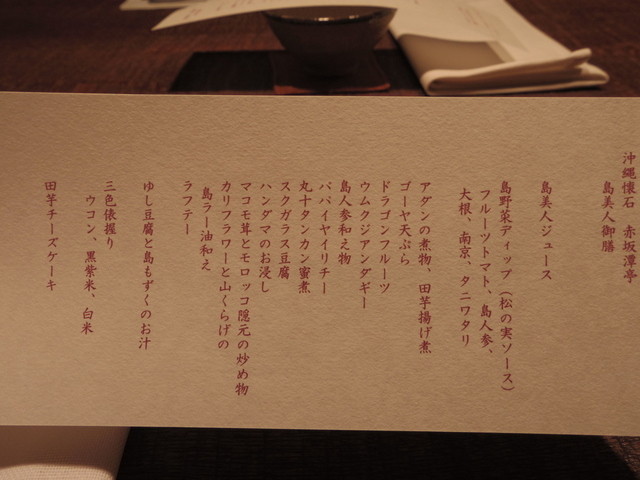 沖縄懐石　赤坂潭亭
島美人御膳
島美人ジュース
島野菜ディップ（松の実ソース）
フルーツトマト、島人参、
大根、南京、タニワタリ
アダンの煮物、田芋揚げ煮
ゴーヤ天ぷら
ドラゴンフルーツ
ウムクジアンダギー
島人参和え物
パパイヤイリチー
丸十タンカン蜜煮
スクガラス豆腐
ハンダマのお浸し
マコモ茸とモロッコ隠元の炒め物
カリフラワーと山くらげの
島ラー油和え
ラフテー
ゆし豆腐と島もずくのお汁
三色俵握り
ウコン、黒紫米、白米
田芋チーズケーキ